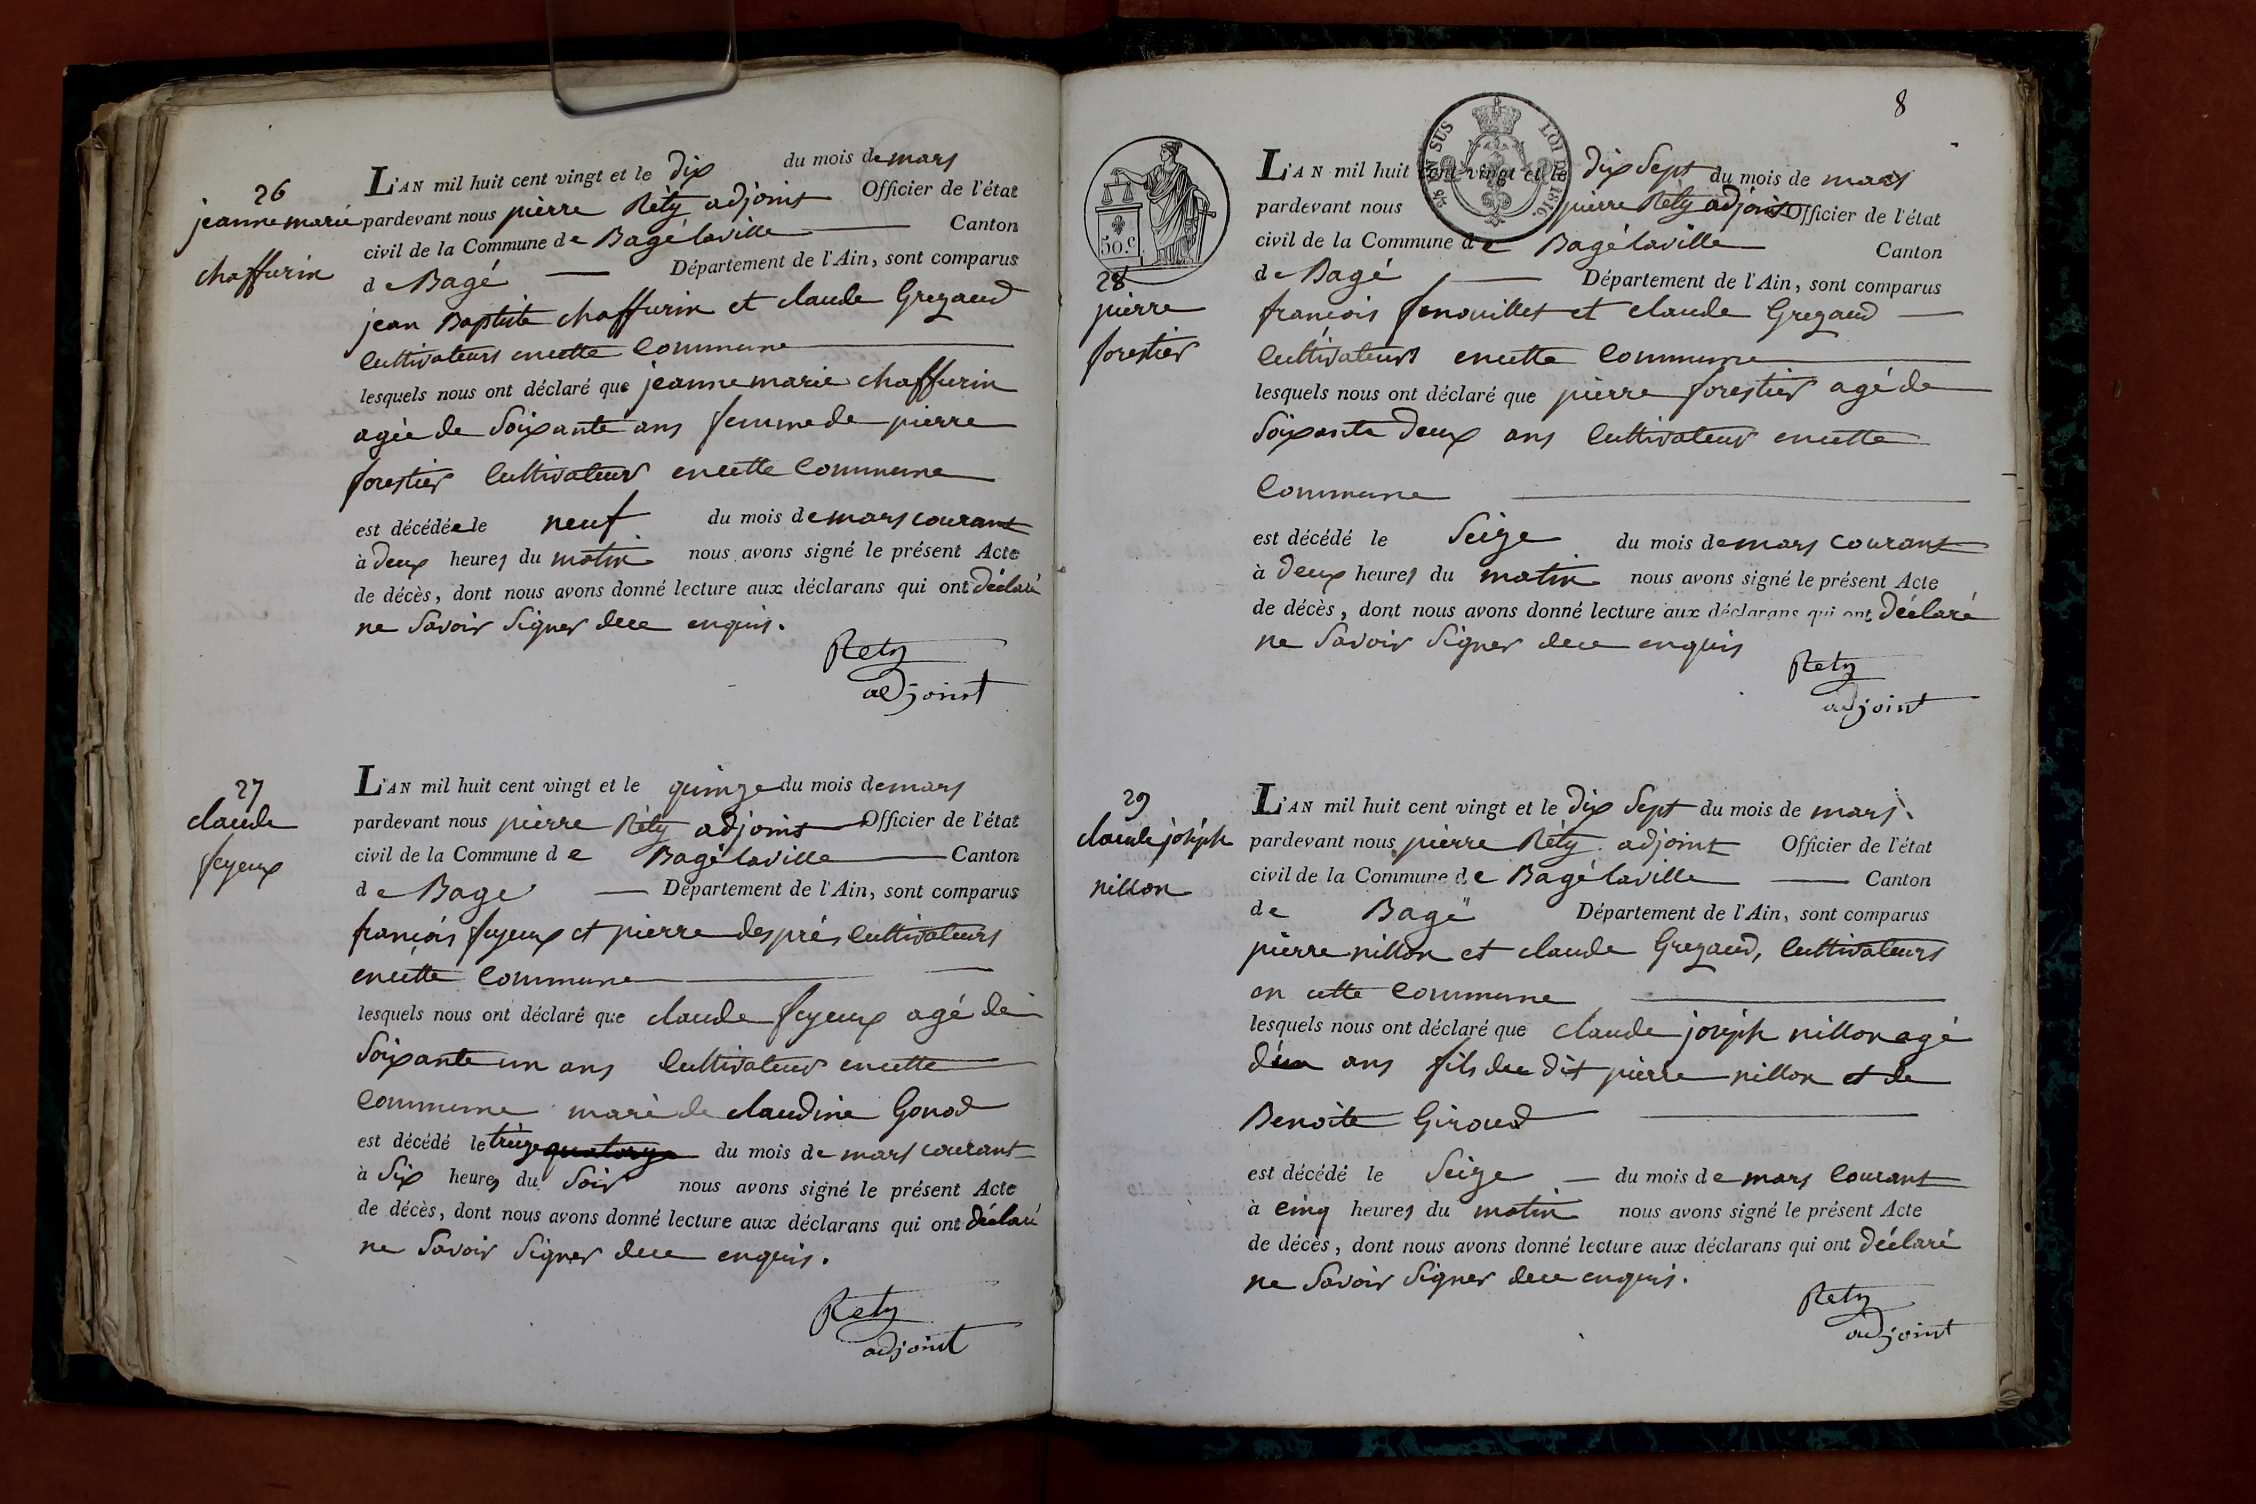 26
jeanne marie
chaffurin
L'AN mil huit cent vingt et le dix du mois de mars
pardevant nous pierre Réty adjoint Officier de l'état
civil de la Commune de Bagélaville Canton
de Bagé Département de l'Ain, sont comparus
jean Baptiste chaffurin et claude Grezaud
Cultivateurs encette Commune
lesquels nous ont déclaré que jeanne marie chaffurin
agée de Soixante ans femme de pierre
forestier Cultivateur encette Commune
est décédée le neuf du mois de mars courant
à deux heures du matin nous avons signé le présent Acte
de décès, dont nous avons donné lecture aux déclarans qui ont déclaré
ne Savoir Signer dece enquis.
Rety
adjoint
27
claude
feyeux
L'AN mil huit cent vingt et le quinze du mois de mars
pardevant nous pierre Réty adjoint Officier de l'état
civil de la Commune de Bagélaville Canton
de Bage Département de l'Ain, sont comparus
françois feyeux et pierre després Cultivateurs
encette Commune
lesquels nous ont déclaré que claude feyeux agé de
Soixante un ans Cultivateur encette
Commune marié de claudine Gonod
est décédé le treize quatorze du mois de mars courant
à Six heures du Soir nous avons signé le présent Acte
de décès, dont nous avons donné lecture aux déclarans qui ont déclaré
ne Savoir Signer dece enquis.
Rety
adjoint
8
EN SUS
LOI DE 1816.
50.c
28
pierre
forestier
L'AN mil huit cent vingt et le dix Sept du mois de mars
pardevant nous pierre Réty adjoint Officier de l'état
civil de la Commune de Bagélaville Canton
de Bagé Département de l'Ain, sont comparus
françois fenouillet et claude Grezaud
Cultivateurs encette Commune
lesquels nous ont déclaré que pierre forestier agé de
Soixante deux ans Cultivateur encette
Commune
est décédé le Seize du mois de mars courant
à deux heures du matin nous avons signé le présent Acte
de décès, dont nous avons donné lecture aux déclarans qui ont déclaré
ne Savoir Signer dece enquis
Rety
adjoint
29
claude joséph
nillon
L'AN mil huit cent vingt et le dix Sept du mois de mars
pardevant nous pierre Réty adjoint Officier de l'état
civil de la Commune de Bagélaville Canton
de Bagé Département de l'Ain, sont comparus
pierre nillon et claude Grezaud, Cultivateurs
en cette Commune
lesquels nous ont déclaré que claude joséph nillon agé
d'un ans fils du dit pierre nillon et de
Benoite Giroud
est décédé le Seize du mois de mars Courant
à cinq heures du matin nous avons signé le présent Acte
de décès, dont nous avons donné lecture aux déclarans qui ont déclaré
ne Savoir Signer dece enquis.
Rety
adjoint